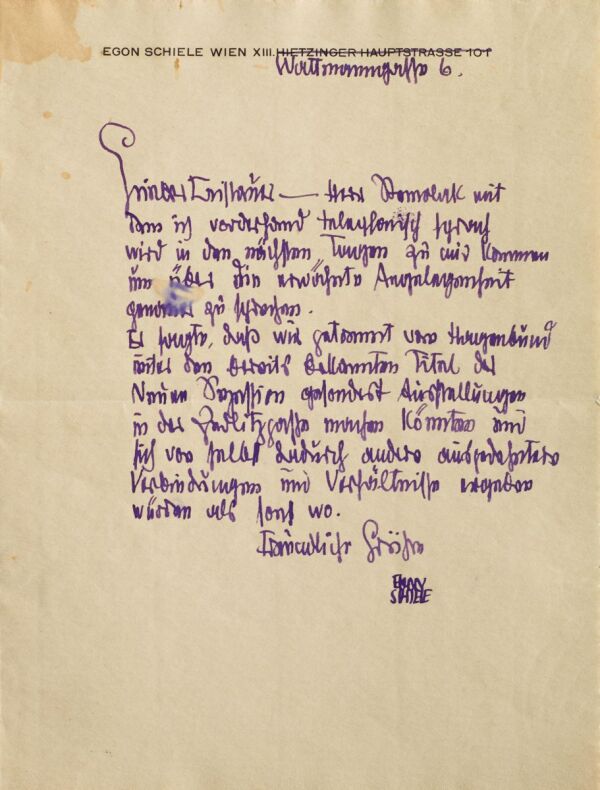 EGON SCHIELE WIEN XIII. HIETZINGER HAUPTSTRASSE 101
Wattmanngasse 6.
Lieber Faistauer — Herr Remolak mit
dem ich vorderhand telephonisch sprach
wird in den nächsten Tagen zu mir kommen
um über die erwähnte Angelegenheit
genauer zu sprechen.
Er sagte, daß wir getrennt vom Hagenbund
unter den bereits bekannten Titel der
Neuen Sezession gesondert Ausstellungen
in der Zedlitzgasse machen könnten und
sich von selbst dadurch andere ausgedehntere
Verbindungen und Verhältnisse ergeben
würden als sonst wo.
Freundliche Grüße
EGON
SCHIELE